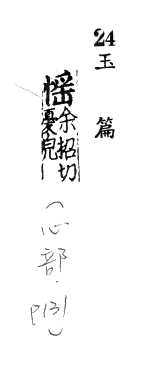 24
玉篇
愮余招切
憂皃
（心部．P131）